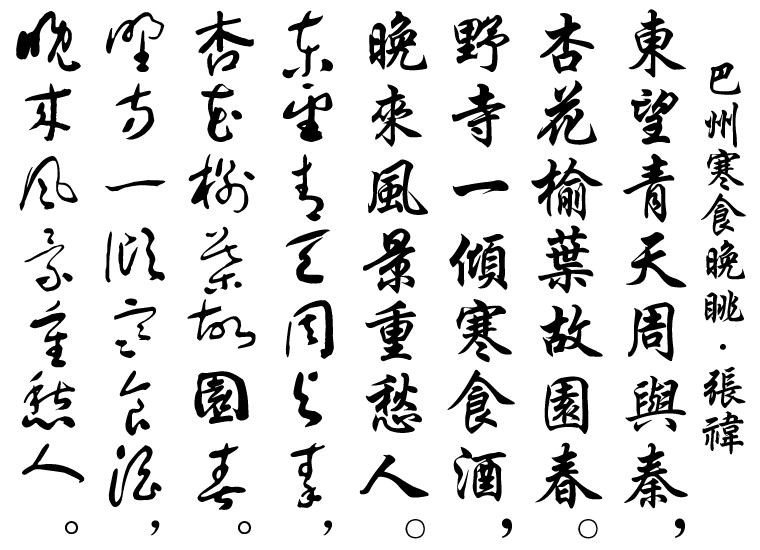 巴州寒食晚眺·張禕
東望青天周與秦，
杏花榆葉故園春○
野寺一傾寒食酒，
晚來風景重愁人○
東望青天周與秦，
杏花榆葉故園春。
野寺一傾寒食酒，
晚來風景重愁人。